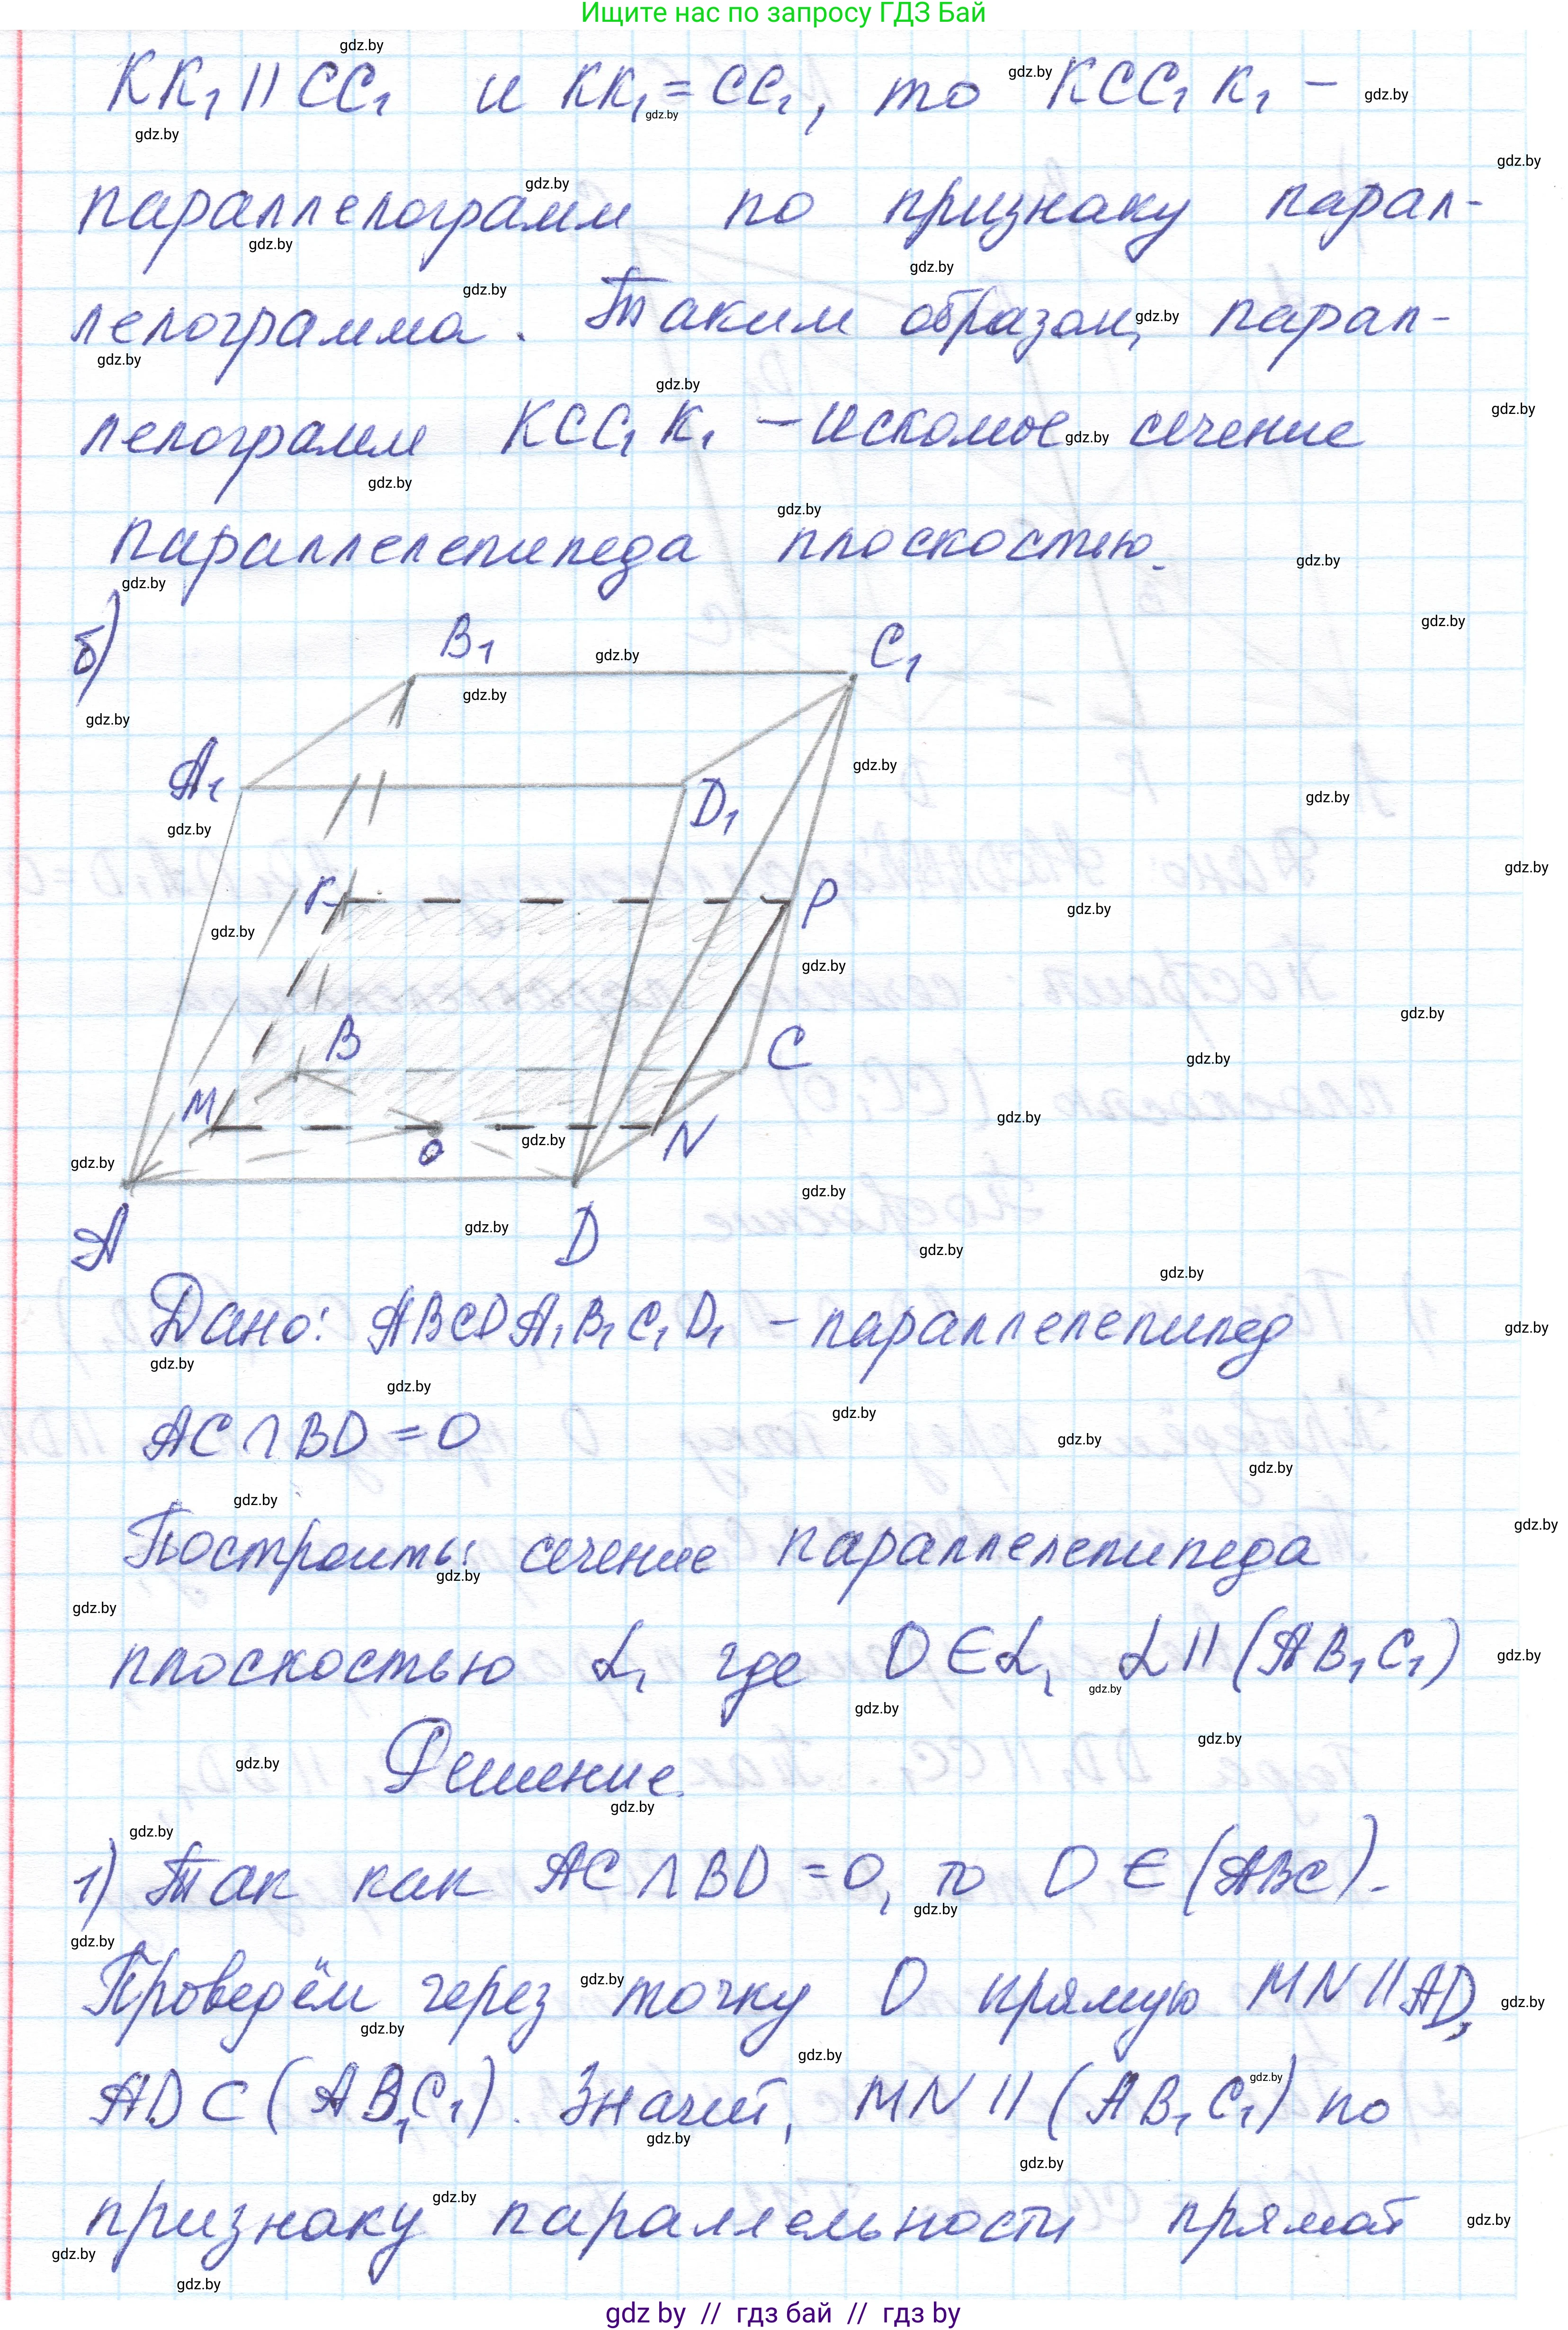 Ищите нас по запросу ГДЗ Бай
KK₁ || CC₁ и KK₁ = CC₁, то KCC₁K₁ –
параллелограмм по признаку парал-
лелограмма. Таким образом, парал-
лелограмм KCC₁K₁ – искомое сечение
параллелепипеда плоскостью.
б)
B₁ C₁
A₁ D₁
F P
B C
M O N
A D
Дано: ABCDA₁B₁C₁D₁ – параллелепипед
AC ∩ BD = O
Построить: сечение параллелепипеда
плоскостью α, где O ∈ α, α || (AB₁C₁)
Решение.
1) Так как AC ∩ BD = O, то O ∈ (ABC).
Проведём через точку O прямую MN || AD,
AD ⊂ (AB₁C₁). Значит, MN || (AB₁C₁) по
признаку параллельности прямой
gdz by // гдз бай // гдз by